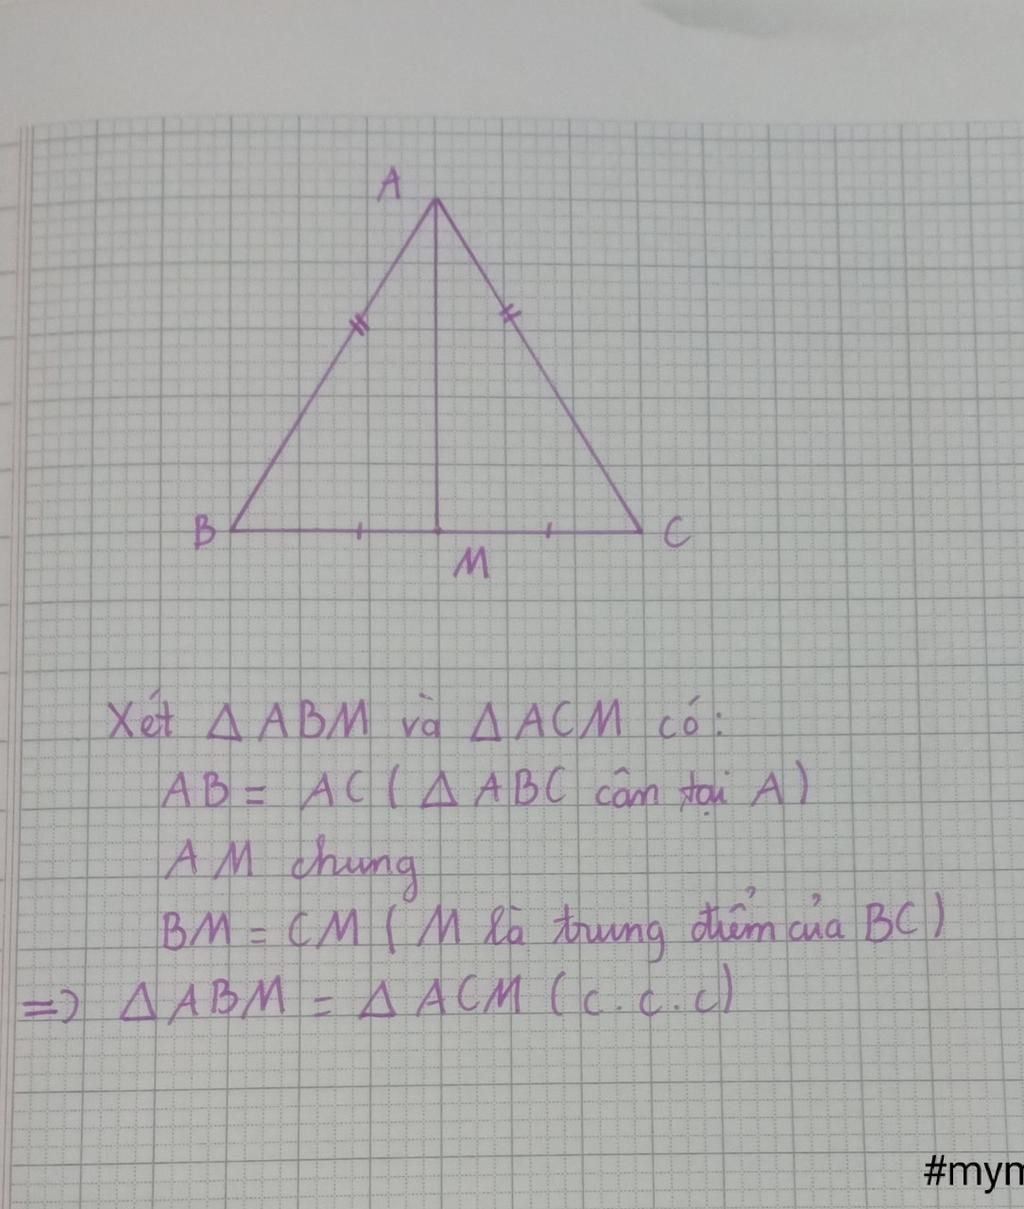 A
B
C
M
Xét Δ ABM và Δ ACM có:
AB = AC ( Δ ABC cân tại A)
AM chung
BM = CM ( M là trung điểm của BC)
=> Δ ABM = Δ ACM (c.c.c)
#mym